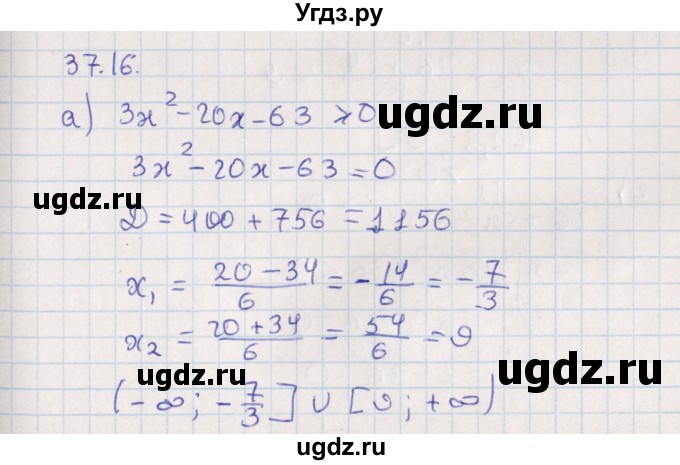 Угдз.ру
37.16.
а) 3x² - 20x - 63 ≥ 0
ugdz.ru
3x² - 20x - 63 = 0
ugdz.ru
D = 400 + 756 = 1156
ugdz.ru
x₁ = (20 - 34)/6 = -14/6 = -7/3
x₂ = (20 + 34)/6 = 54/6 = 9
ugdz.ru
ugdz.ru
(-∞; -7/3] ∪ [9; +∞)
ugdz.ru